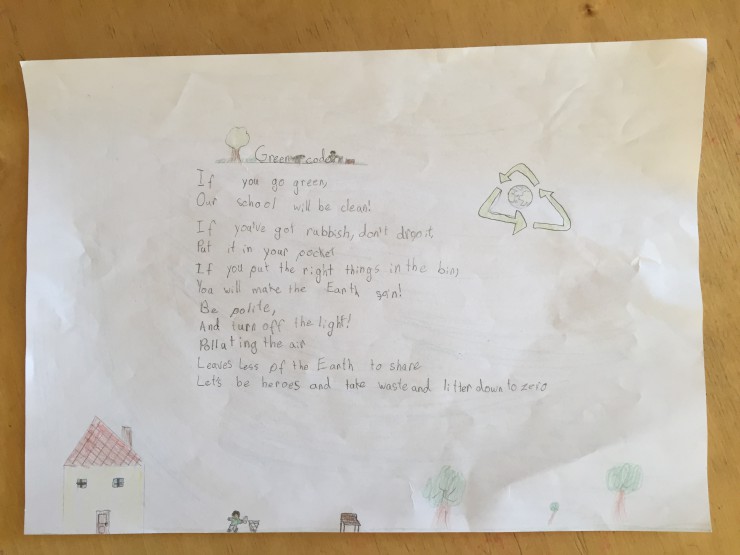 Green code
If you go green,
Our school will be clean!
If you've got rubbish, don't drop it
Put it in your pocket
If you put the right things in the bin,
You will make the Earth gain!
Be polite,
And turn off the light!
Polluting the air
Leaves less of the Earth to share
Let's be heroes and take waste and litter down to zero